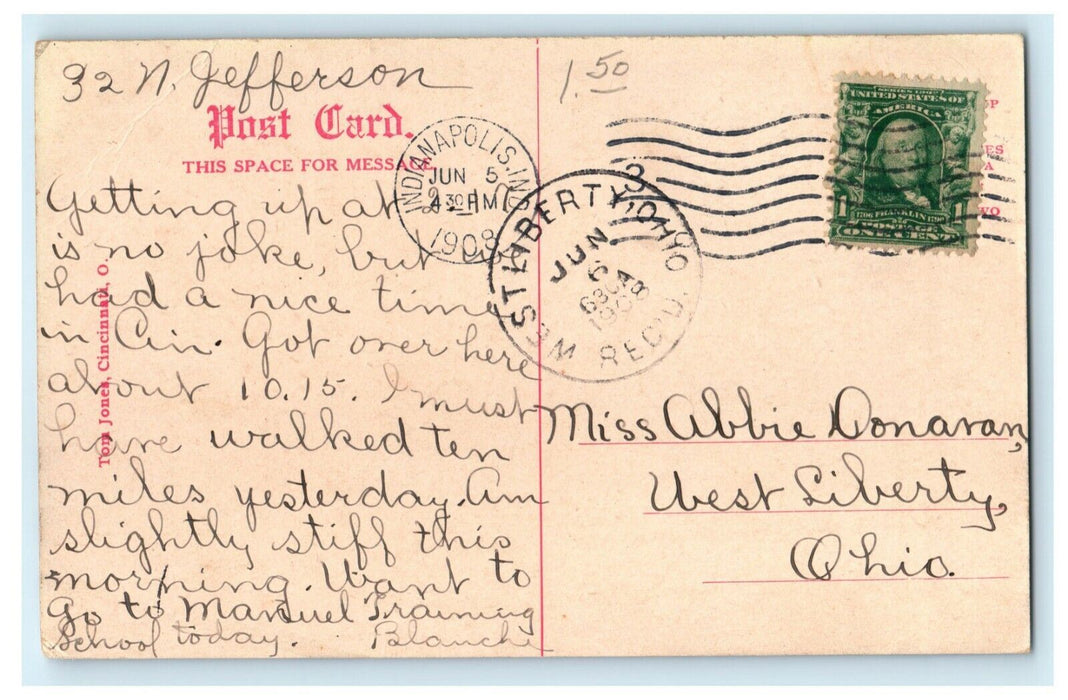 32 N. Jefferson
1.50
Post Card.
THIS SPACE FOR MESSAGE
INDIANAPOLIS, IND
JUN 5
2 30 PM
1908
3
WEST LIBERTY, OHIO
JUN
6
1908
REC'D.
SERIES 1902
UNITED STATES OF
AMERICA
1706 FRANKLIN 1790
POSTAGE
1 ONE CENT 1
Getting up at
is no joke, but we
had a nice time
in Cin. Got over here
about 10.15. I must
have walked ten
miles yesterday. Am
slightly stiff this
morning. Want to
go to Manuel Training
School today. Blanche
Tom Jones, Cincinnati, O.
Miss Abbie Donavan,
West Liberty,
Ohio.